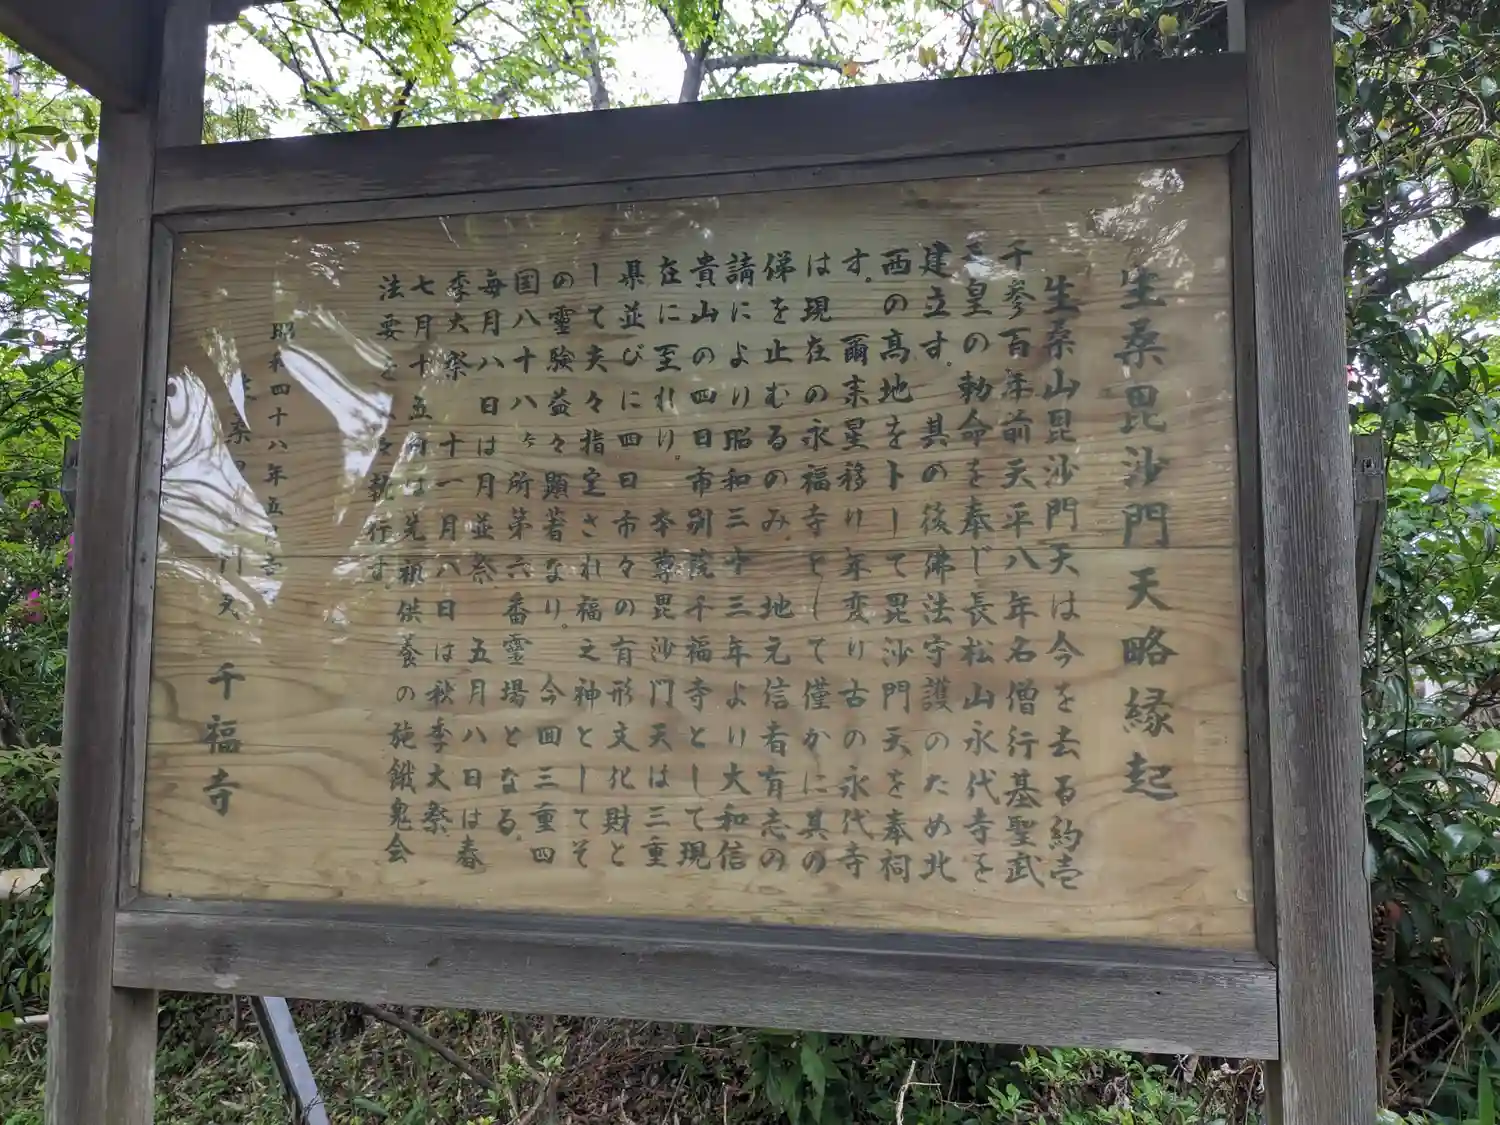 生桑毘沙門天略縁起
生桑山毘沙門天は今を去る約壱
千参百年前天平八年名僧行基聖武
皇の勅命を奉じ長松山永代寺を
建立す。其の後佛法守護のため北
西の高地を卜して毘沙門天を奉祠
す。爾来星移り年変り古の永代寺
は現在の永福寺として僅かに其の
俤を止むるのみ。地元信者有志の
請により昭和三十三年より大和信
貴山の四日市別院千福寺として現
在に至れり。本尊毘沙门天は三重
県並びに四日市々の有形文化財と
して夫々指定され福之神としてそ
の霊験益々顕著なり。今回三重四
国八十八ヶ所第六番霊場となる。
毎月八日は月並祭、五月八日は春
季大祭、十一月八日は秋季大祭、
七月十五日は先祖供養の施餓鬼会
法要を 執行す。
昭和四十八年五 吉
桑 门天 千福寺